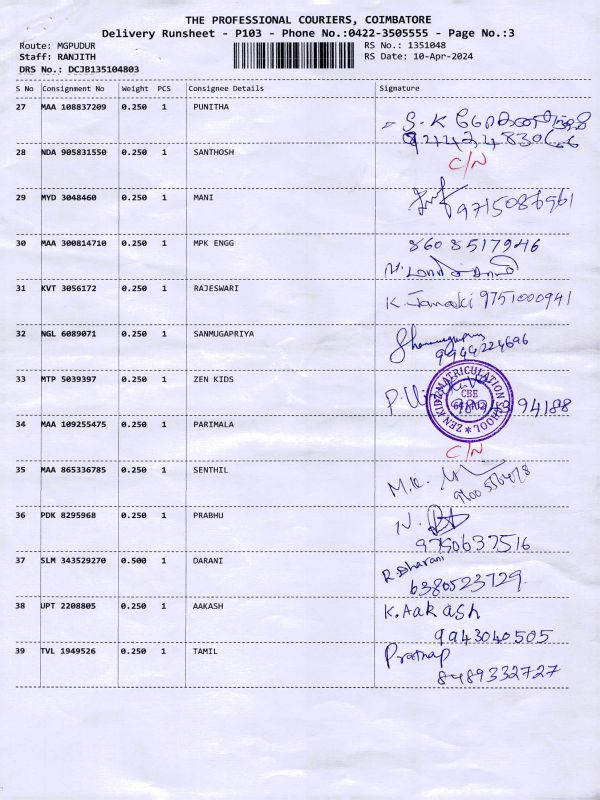 THE PROFESSIONAL COURIERS, COIMBATORE
Delivery Runsheet - P103 - Phone No.:0422-3505555 - Page No.:3
Route: MGPUDUR RS No.: 1351048
Staff: RANJITH RS Date: 10-Apr-2024
DRS No.: DCJB135104803
S No Consignment No Weight PCS Consignee Details Signature
27 MAA 108837209 0.250 1 PUNITHA
28 NDA 905831550 0.250 1 SANTHOSH C/N
29 MYD 3048460 0.250 1 MANI
9715086961
30 MAA 300814710 0.250 1 MPK ENGG 8608517946
31 KVT 3056172 0.250 1 RAJESWARI K. Janaki 9751000941
32 NGL 6089071 0.250 1 SANMUGAPRIYA Shanmugapriya
9944224696
33 MTP 5039397 0.250 1 ZEN KIDS
ZEN KIDZ MATRICULATION SCHOOL
CBE
94188
34 MAA 109255475 0.250 1 PARIMALA
C/N
35 MAA 865336785 0.250 1 SENTHIL M.K.
36 PDK 8295968 0.250 1 PRABHU N.
9750637516
37 SLM 343529270 0.500 1 DARANI R. Dharani
6380523729
38 UPT 2208805 0.250 1 AAKASH K. Aakash
9943040505
39 TVL 1949526 0.250 1 TAMIL Prathap
8489332727